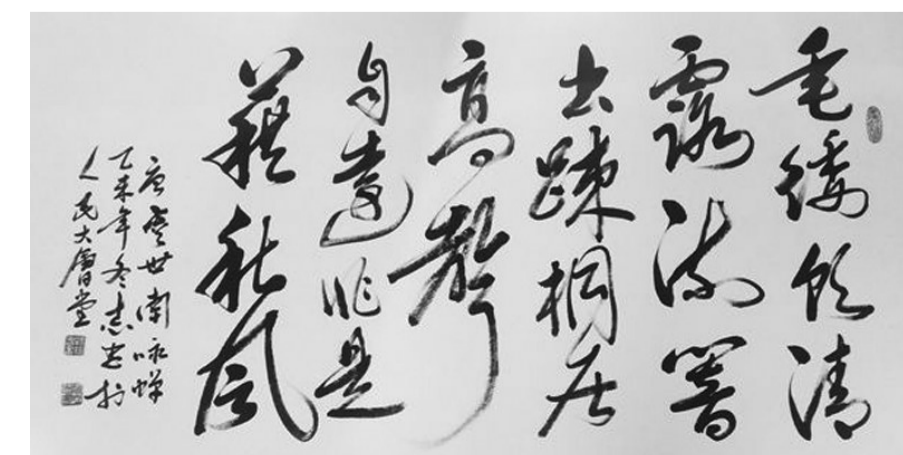 垂緌飲清
露流響
出踈桐居
高聲
自遠非是
藉秋風
唐虞世南咏蝉
乙未年冬志於
人民大會堂